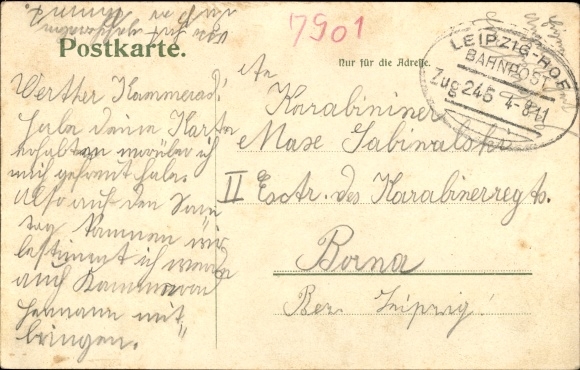 7901
Postkarte.
Nur für die Adresse.
LEIPZIG-HOF
BAHNPOST
Zug 245 4.8.11
Werther Kammerad!
habe deine Karte
erhalten worüber ich
mich gefreut habe.
Also auf den Sonn
tag kommen wir
bestimmt ich werde
auch Kammerad
Hermann mit
bringen."
An
Karabinier
Max
II Esctr. des Karabinerregts.
Borna
Bez. Leipzig!